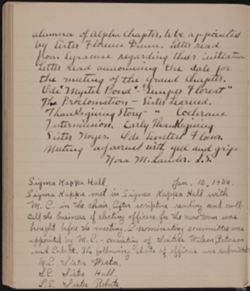 alumna of Alpha Chapter, to be appointed
by Sister Florence Dunn. Letter read
from Syracuse regarding their initiation
Letter read announcing the date for
the meeting of the Grand Chapter.
Ode Myrtle Bond "Semper Florens"
The Proclamation - Sister Learned.
Thanksgiving Story - " Cochrane
Intermission. Early Thanksgiving
Sister Noyes. Ode Violet Flower
Meeting adjourned with yell and grip.
Nora M. Lander. S.K.
Sigma Kappa Hall. Jan. 10, 1906.
Sigma Kappa met in Sigma Kappa Hall with
M.C. in the chair. After scripture reading and roll-
call the business of electing officers for the new term was
brought before the meeting. A nominating committee was
appointed by M.C. - consisting of Sisters Wilson, Peterson
and The following slate of officers was submitted
W.C. Sister Weston.
S.C. Sister Hall.
Sister Roberts